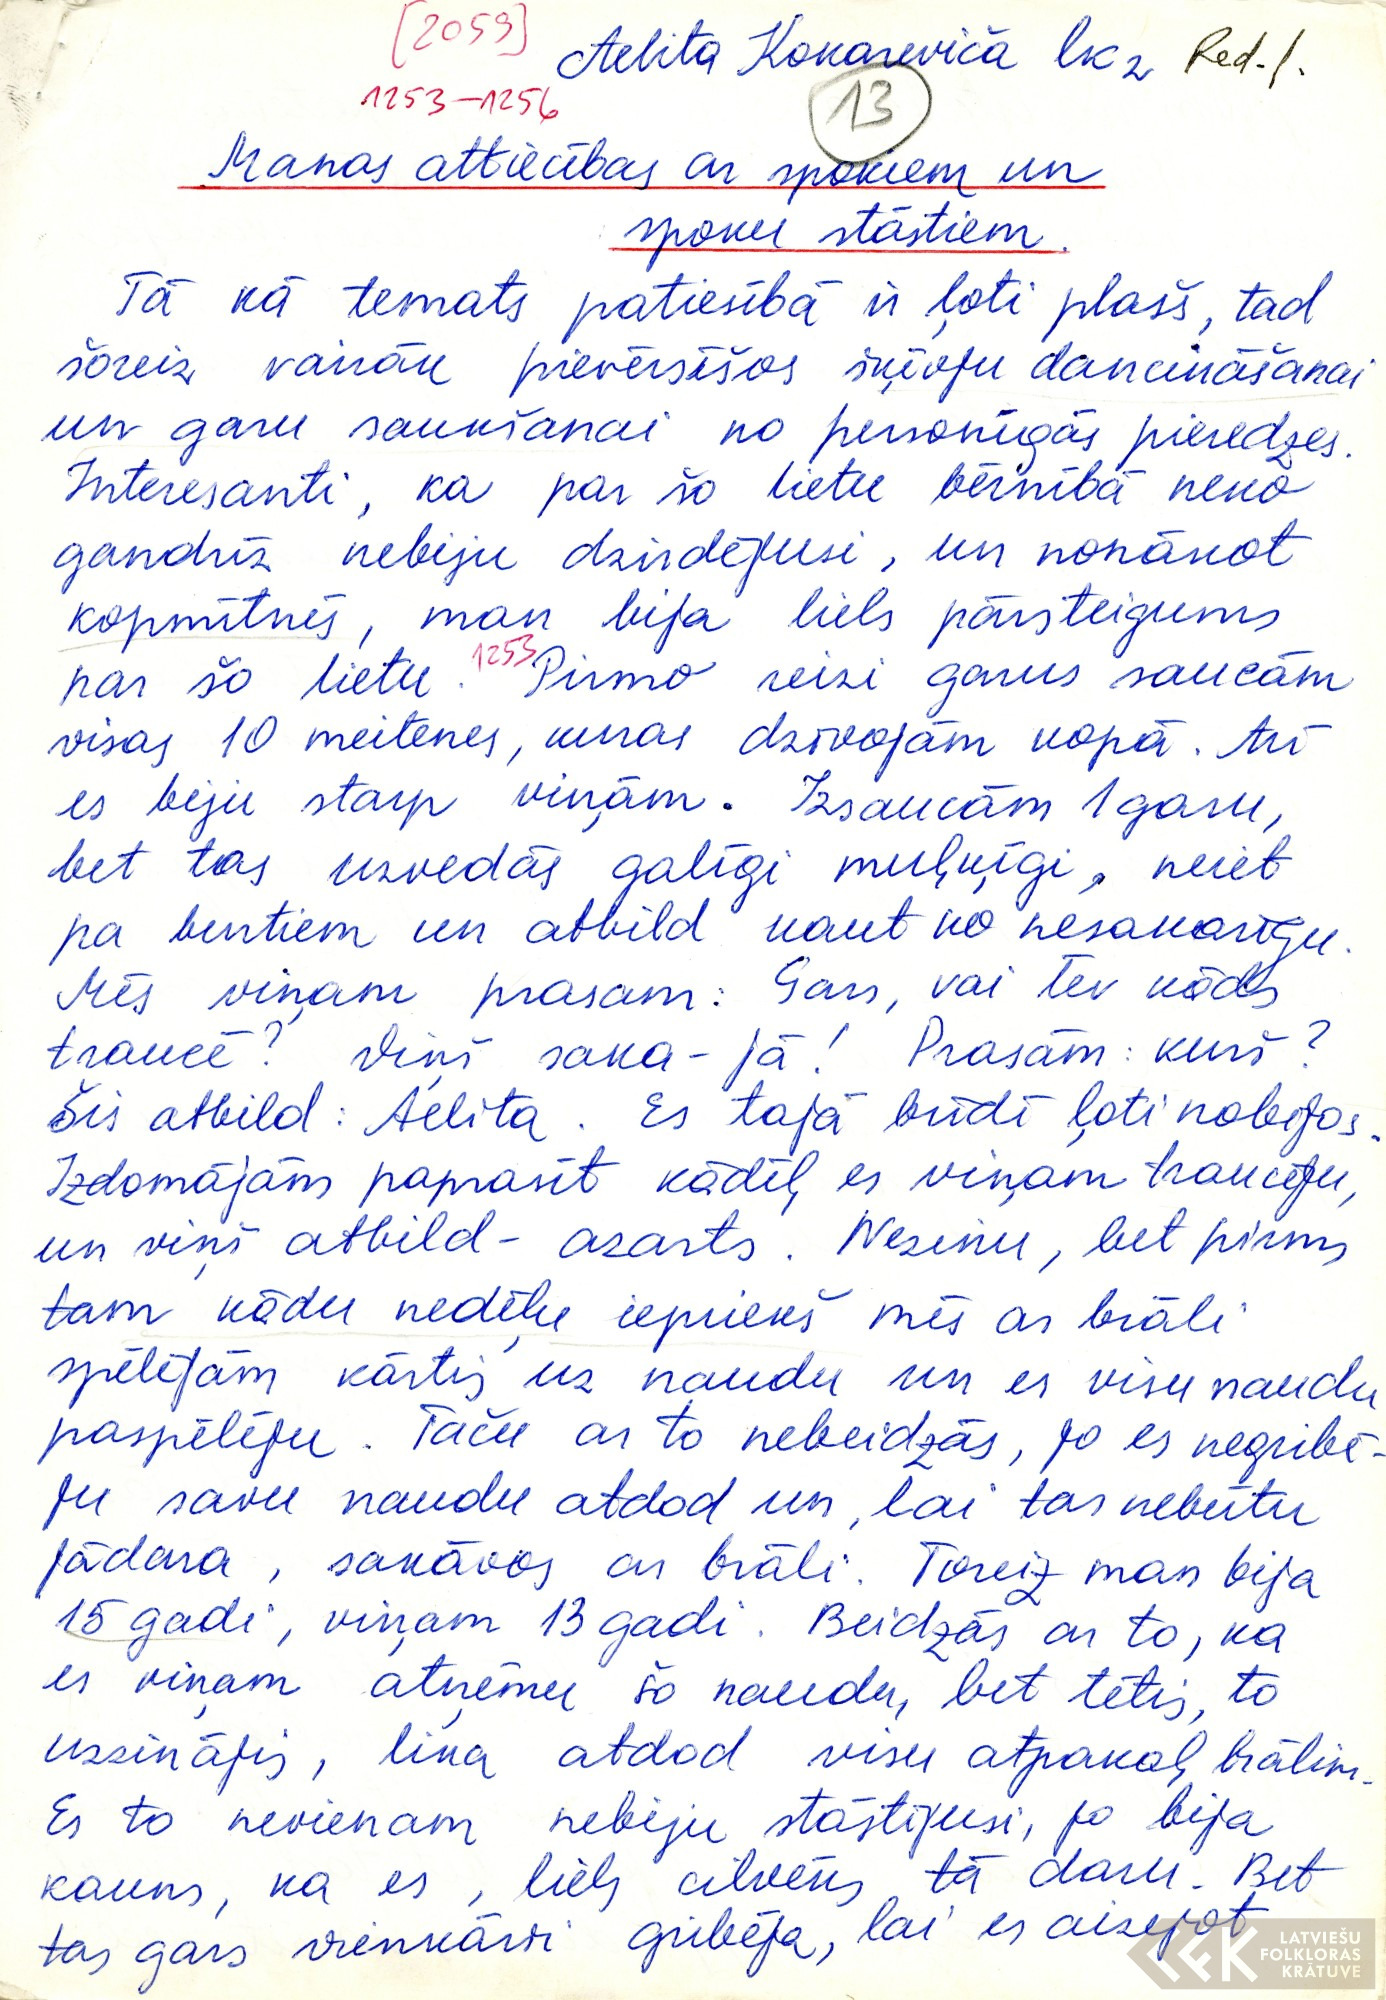 [2059]
Aelita Kokareviča lkz Red. f.
1253-1256
13
Manas attiecības ar spokiem un
spoku stāstiem.
Tā kā temats patiesībā ir ļoti plašs, tad
šoreiz vairāk pievērsīšos šķīvju dancināšanai
un garu saukšanai no personīgās pieredzes.
Interesanti, ka par šo lietu bērnībā neko
gandrīz nebiju dzirdējusi, un nonākot
kopmītnēs, man bija liels pārsteigums
par šo lietu. 1253 Pirmo reizi garus saucām
visas 10 meitenes, kuras dzīvojām kopā. Arī
es biju starp viņām. Izsaucām 1 garu,
bet tas uzvedās galīgi muļķīgi, neiet
pa burtiem un atbild kaut ko nesakarīgu.
Mēs viņam prasam: Gars, vai tev kāds
traucē? Viņš saka - jā! Prasām: kurš?
Šis atbild: Aelita. Es tajā brīdī ļoti nobijos.
Izdomājām paprasīt kādēļ es viņam traucēju,
un viņš atbild - azarts. Nezinu, bet pirms
tam kādu nedēļu iepriekš mēs ar brāli
spēlējām kārtis uz naudu un es visu naudu
paspēlēju. Taču ar to nebeidzās, jo es negribē-
ju savu naudu atdod un, lai tas nebūtu
jādara, sakāvos ar brāli. Toreiz man bija
15 gadi, viņam 13 gadi. Beidzās ar to, ka
es viņam atņēmu šo naudu, bet tētis, to
uzzinājis, lika atdod visu atpakaļ brālim.
Es to nevienam nebiju stāstījusi, jo bija
kauns, ka es, liels cilvēks tā daru. Bet
tas gars vienkārši gribēja, lai es aizejot
LATVIEŠU
FOLKLORAS
KRĀTUVE